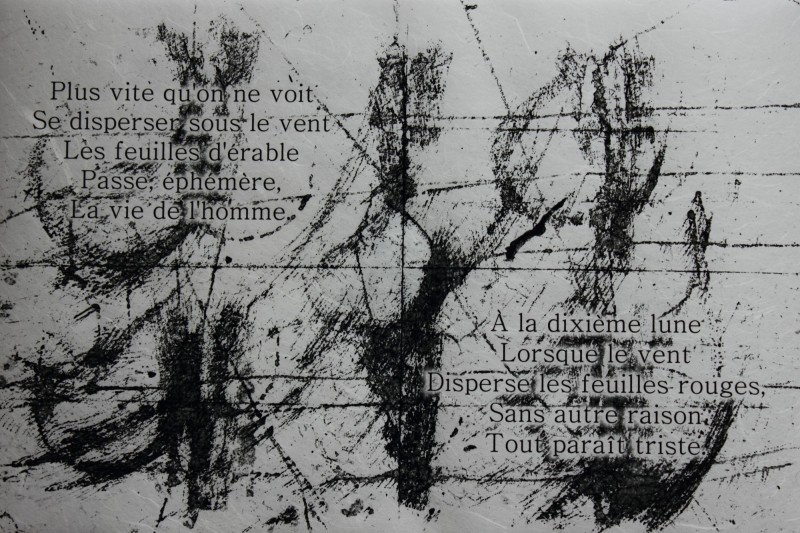 Plus vite qu'on ne voit
Se disperser sous le vent
Les feuilles d'érable
Passe, éphémère,
La vie de l'homme.
À la dixième lune
Lorsque le vent
Disperse les feuilles rouges,
Sans autre raison,
Tout paraît triste.